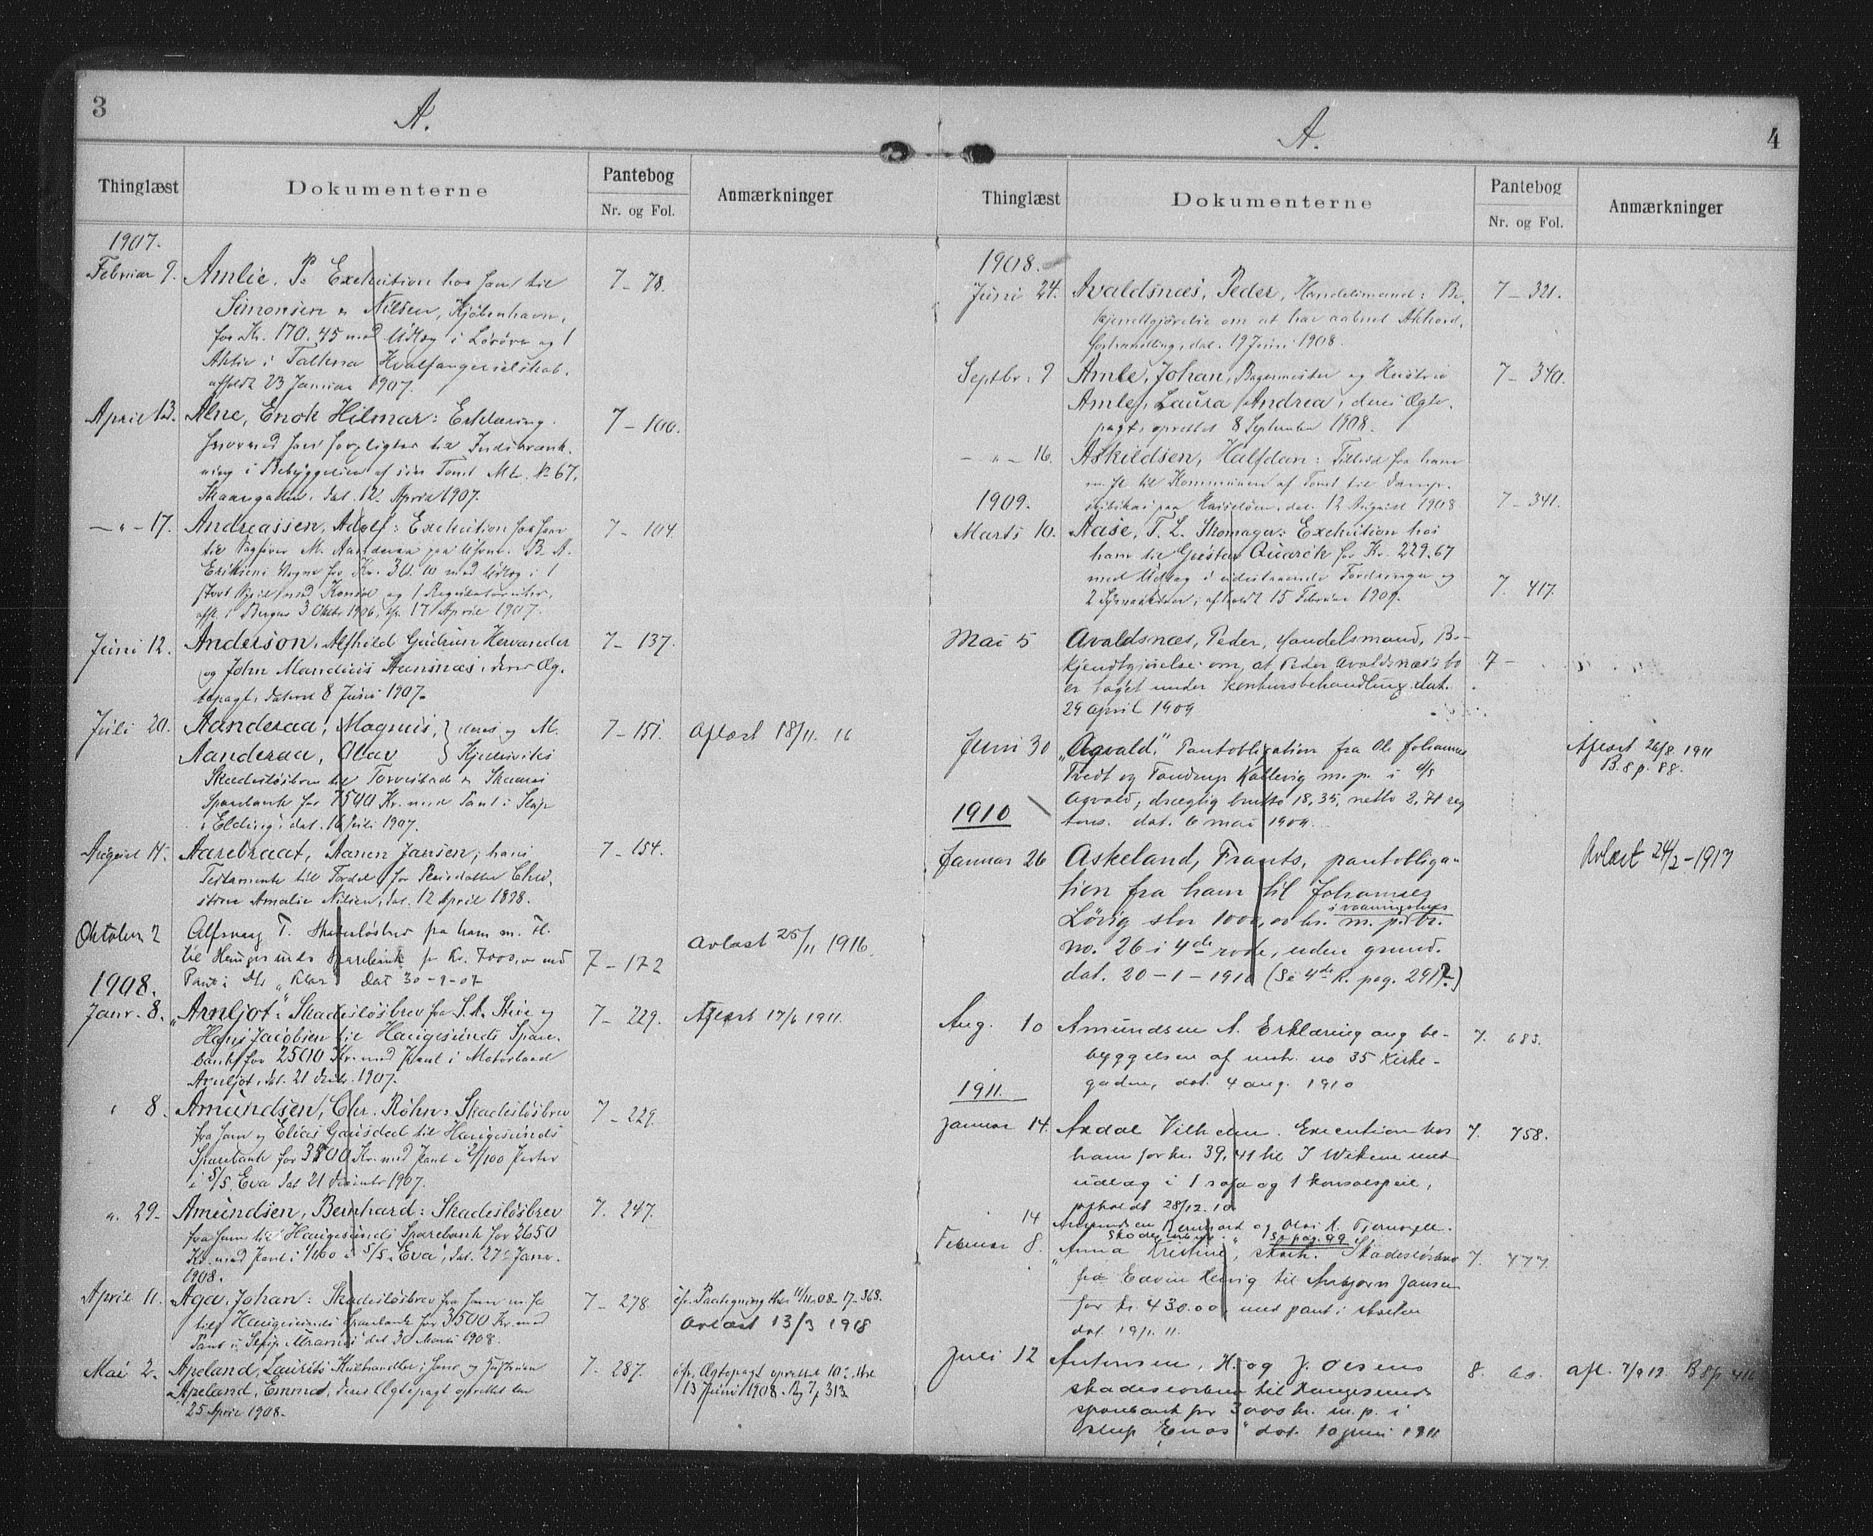 3
A.
Thinglæst
Dokumenterne
Pantebog
Nr. og Fol.
Anmærkninger
1907.
Februar 9. Amlie, P. Exekution hos ham til 7 - 78.
Simonsen & Nilsen, Kjøbenhavn,
for Kr. 170.45 med Udlæg i Løsøre og 1
Aktie i Talkna Hvalfangerselskab.
afholdt 23 Januar 1907.
April 13. Alne, Enok Hilmar: Erklæring. 7 - 100.
hvorved han forpligter til Indskrænk-
ning i Bebyggelsen af sin Tomt Mtr. No 67,
Skaaregaden, dat. 12 April 1907.
— " — 17. Andreassen, Adolf: Exekution hos ham 7 - 104.
til Sagfører M. Aanderaa paa B. A.
Eriksens Vegne for Kr. 30.10 med Udlæg i 1
stort Speil med Konsol og 1 Regulatoruhr,
afh. i Bergen 3 Oktr 1906, 17 April 1907.
Juni 12. Anderson, Alfhild Gudrun Hervander 7 - 137.
og John Mandius Stensnæs, deres Æg-
tepagt, dateret 8 Juni 1907.
Juli 20. Aanderaa, Magnus, deres og M. 7 - 151. Aflæst 18/11. 16
Aanderaa, Olav
Skadesløsbrev til Torvestad & Skaares
Sparebank for 7500 Kr. med Pant i Skip
"Elding", dat. 16 Juli 1907.
August 14. Aarebraat, Aanen Jansen, hans 7 - 154.
Testamente til Fordel for Chri-
stine Amalie Nilsen, dat. 12 April 1898.
Oktober 2 Alfsvaag T. Skadesløsbrev fra ham m. fl. 7 - 172 Avlæst 25/11 1916.
til Haugesunds Sparebank for Kr. 7000,00 med
Pant i Ds "Klar" Dat 30-9-07
1908.
Janr. 8. "Arnljot": Skadesløsbrev fra S. A. Stive og 7 - 229. Aflæst 17/6 1911.
Hans Jacobsen til Haugesunds Spare-
bank for 2500 Kr. med Pant i Motorbaad
Arnljot, dat. 21 Decbr. 1907.
" 8. Amundsen, Chr. Røhn: Skadesløsbrev 7 - 229.
fra ham og Elias Gausdad til Haugesunds
Sparebank for 3800 Kr. med Pant i /100 Parter
i S/S. Eva dat 21 December 1907.
" 29. Amundsen, Bernhard: Skadesløsbrev 7. 247.
fra ham til Haugesunds Sparebank for 2650
Kr. med Pant i /100 i S/S. "Eva", dat. 27 Janr.
1908.
April 11. Aga, Johan: Skadesløsbrev fra ham m. fl. 7 - 278 cfr. Paategning thl. 11/11.08 - 17 - 368.
til Haugesunds Sparebank for 3500 Kr. med Avlæst 13/3 1918
Pant i dat 30 Marts 1908.
Mai 2. Apeland, Laurits Kulhandler; ham og Hustruen 7. 287. cfr. Ægtepagt oprettet
Apeland, Emma, deres Ægtepagt oprettet den 13 Juni 1908. Bg 7, 313
25 April 1908.
4
A.
Thinglæst
Dokumenterne
Pantebog
Nr. og Fol.
Anmærkninger
1908.
Juni 24. Avaldsnæs, Peder, Handelsmand: Be- 7 - 321.
kjendtgjørelse om at have aabnet Akkord-
forhandling, dat. 19 Juni 1908.
Septbr. 9 Amle, Johan, Bagermester og Hustru 7 - 340.
Amle, Laura Andrea, deres Ægte-
pagt, oprettet 8 September 1908.
— " — 16. Askildsen, Halfdan: Tilbud fra ham
m. fl. til Kommunen af Tomt til Damp-
paa Hasseløen, dat. 12 August 1908 7 - 341.
1909.
Marts 10. Aase, T. L. Skomager: Exekution hos
ham til Gustav Quarck for Kr. 229.67
med Udlæg i udestaaende Fordringer og
2 Symaskiner, afholdt 15 Februar 1909. 7. 417.
Mai 5 Avaldsnæs, Peder, Handelsmand, Be- 7 -
kjendtgjørelse om, at Peder Avaldsnæs's bo
er taget under konkursbehandling. dat.
29 april 1909
Juni 30 "Agvald," Pantobligation fra Ole Johannes Aflæst 26/8. 1911
Tvedt og Tandrup Kallevig m. p. i d/s B. 8 p. 88.
Agvald, drægtig brutto 18,35, netto 2,71 reg
tons. dat. 6 mai 1909.
1910
Januar 26 Askeland, Frants, pantobliga- Avlæst 24/2 - 1917
tion fra ham til Johannes
Løvig stor 1000,00 kr. m. p. i vaaningshus br.
no. 26 i 4de rode, uden grund.
dat. 20-1-1910 (Se 4de R. pag. 291)
Aug. 10 Amundsen A. Erklæring ang be- 7. 683.
byggelsen af mtr. no 35 Kirke-
gaden, dat. 4 aug. 1910
1911.
Januar 14. Axdal Vilhelm. Execution hos 7. 758.
ham for kr. 39,41 til J Wikene med
udlæg i 1 sofa og 1 konsolspeil,
afholdt 28/12.10
14 Amundsen Bernhard og Olai A. Tjernagel.
Skadesløsbrev. Se pag. 99
Februar 8. "Anna Kristine", skøit. Skadesløsbrev 7. 777.
fra Edvin Helvig til Anbjørn Jansen
for kr. 430.00, med pant i skøiten
dat. 19/1. 11.
Juli 12 Antonsen, H. og J. Olsens 8. 60. afl. 7/9 12. B 8 p. 416
skadesløsbrev til Haugesunds
sparebank for 3000 kr. m. p. i
slup "Enos" dat. 10 juni 1911